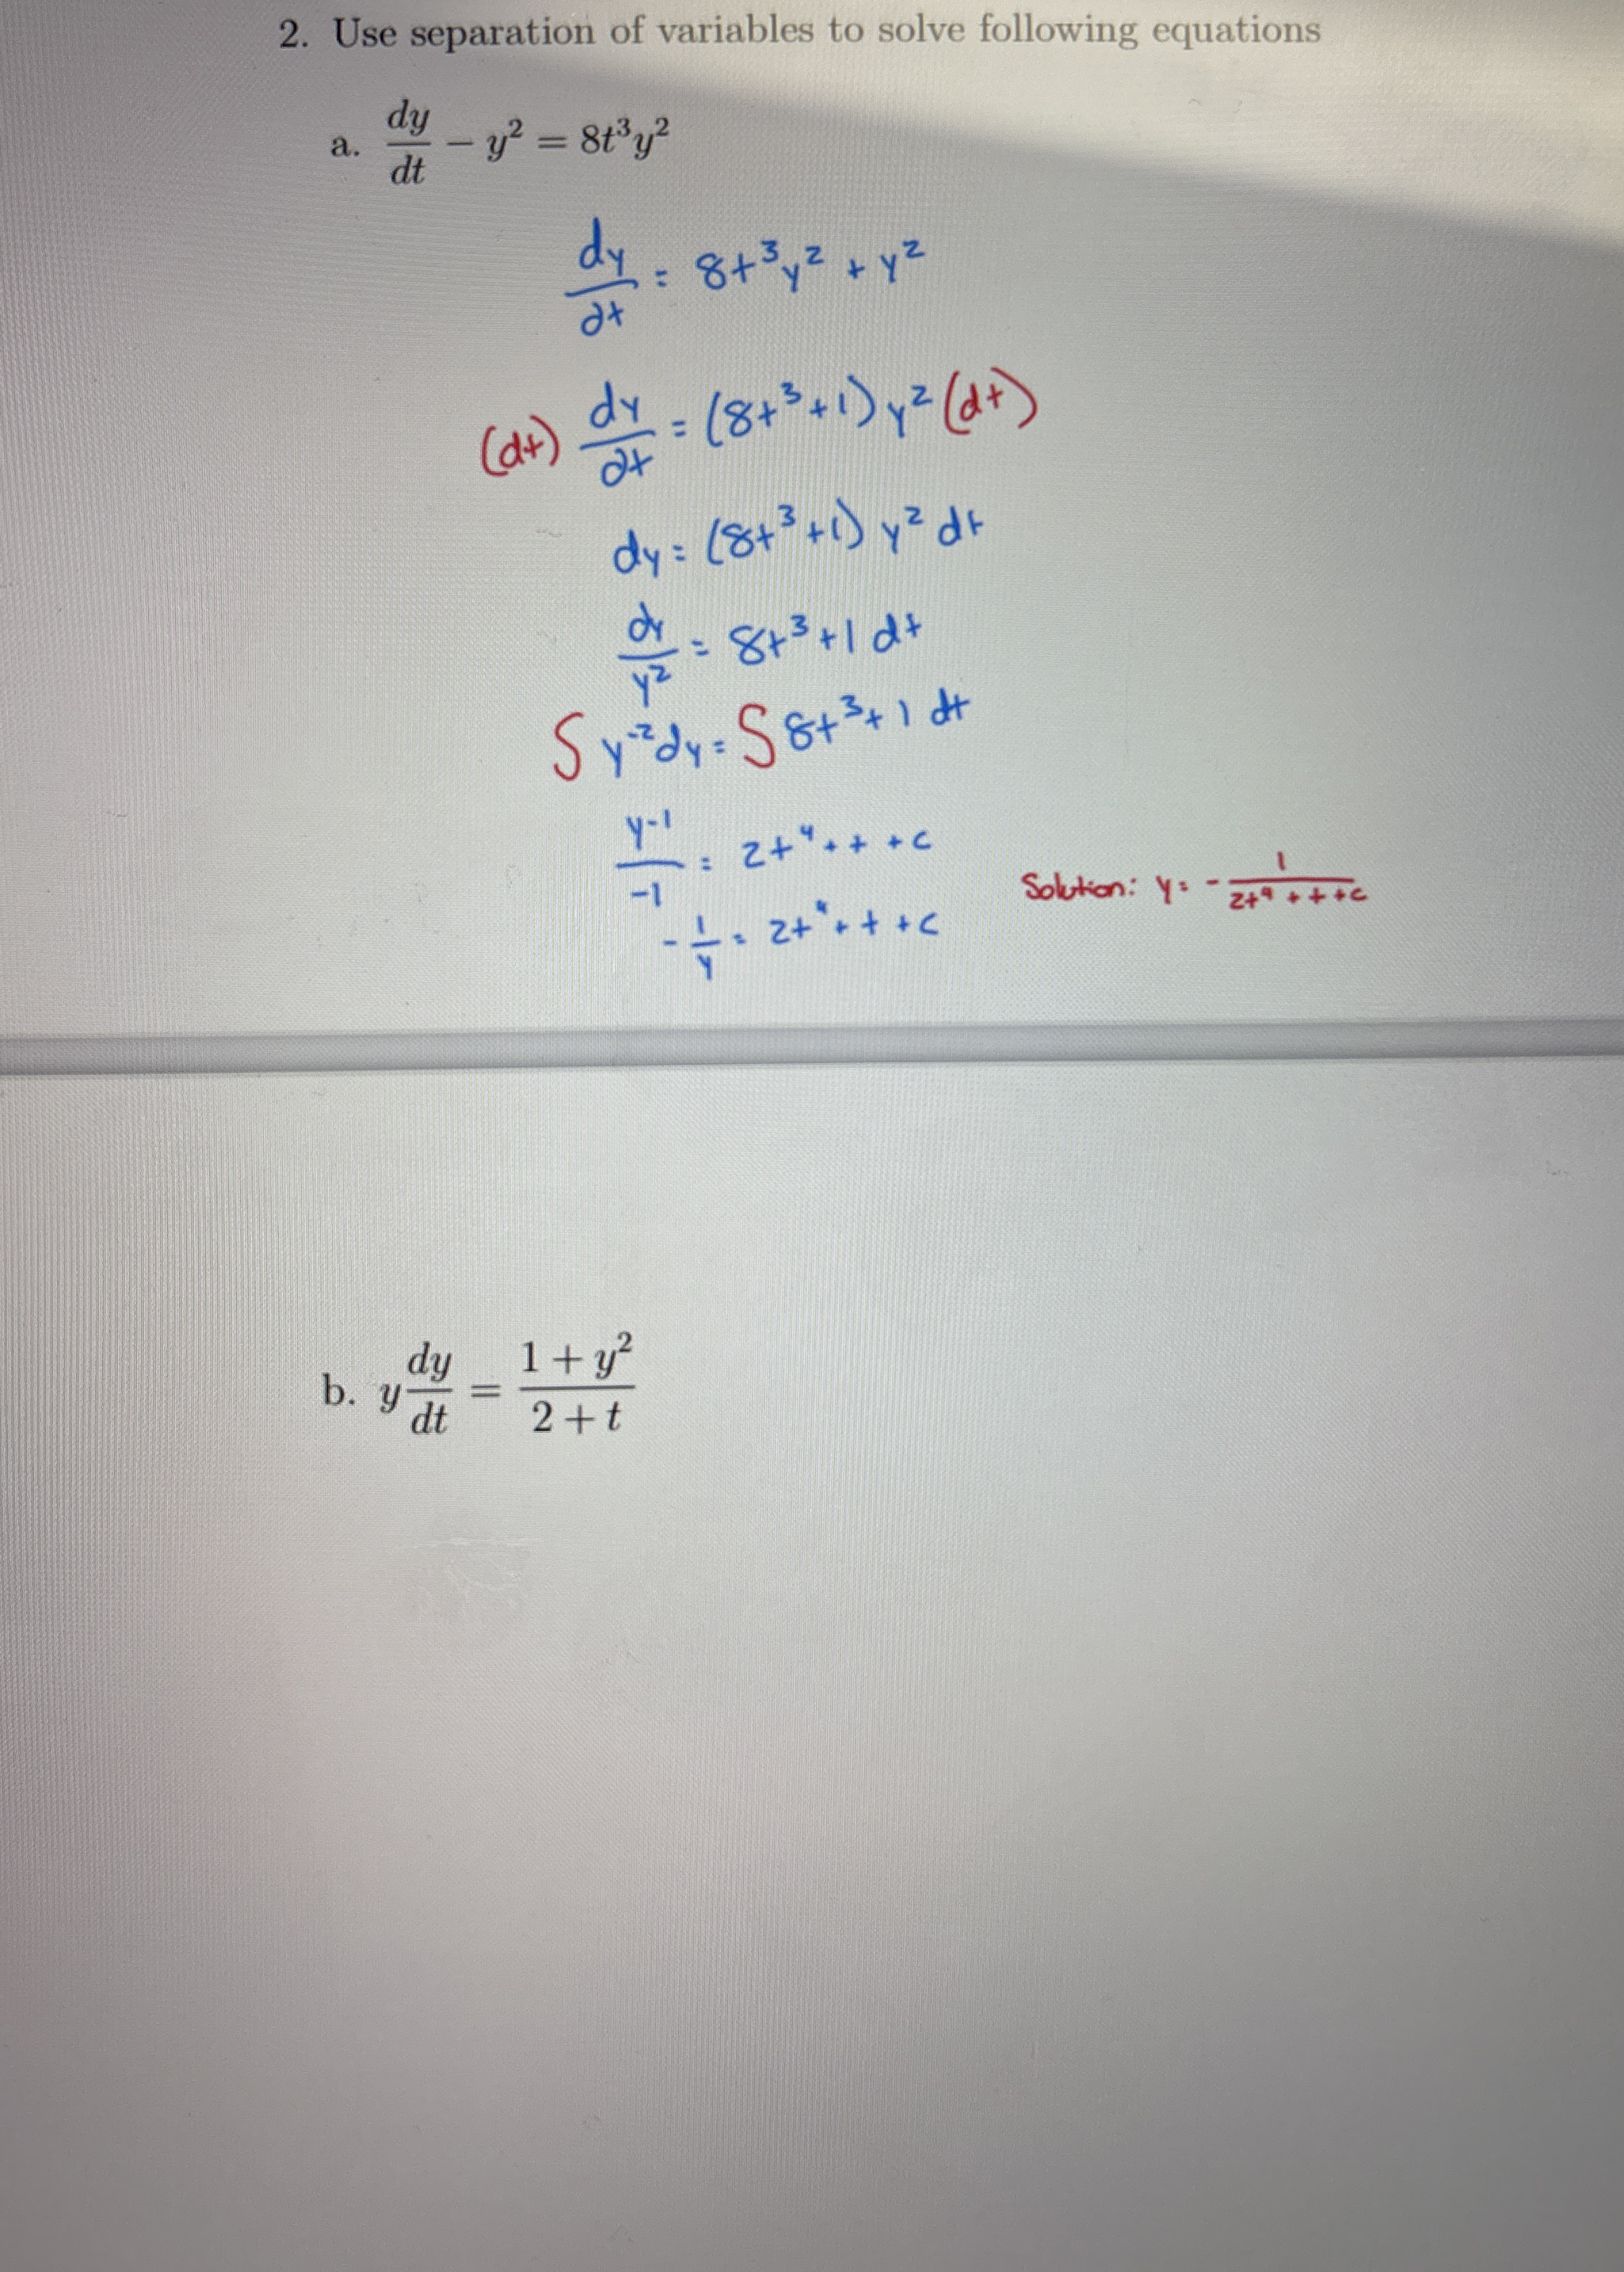 2. Use separation of variables to solve following equations
a. dy/dt − y² = 8t³y²
dy/dt = 8t³y² + y²
(dt) dy/dt = (8t³+1) y² (dt)
dy = (8t³+1) y² dt
dy/y² = 8t³+1 dt
∫ y⁻² dy = ∫ 8t³+1 dt
y-1/-1 = 2t⁴ + t + c
-1/y = 2t⁴ + t + c
Solution: y = - 1/2t⁴ + t + c
b. y dy/dt = 1 + y²/2 + t